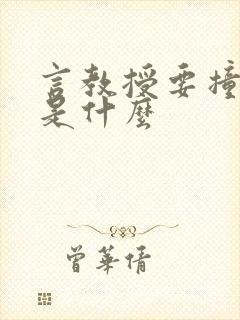 言教授要撞
是什麼
曾華倩